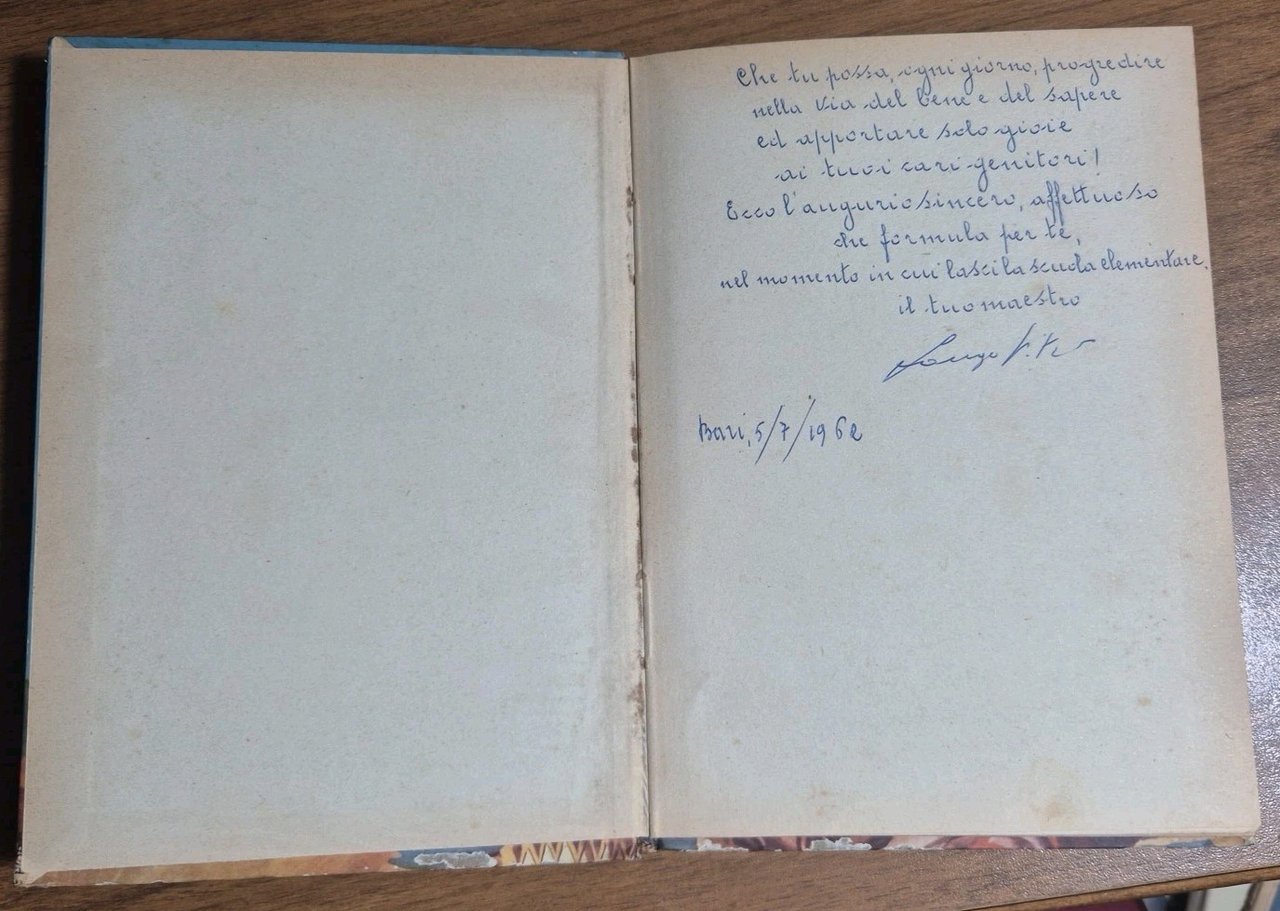 Che tu possa, ogni giorno, progredire
nella via del bene e del sapere
ed apportare solo gioie
ai tuoi cari genitori!
Ecco l'augurio sincero, affettuoso
che formula per te,
nel momento in cui lasci la scuola elementare,
il tuo maestro
Bari, 5/7/1962